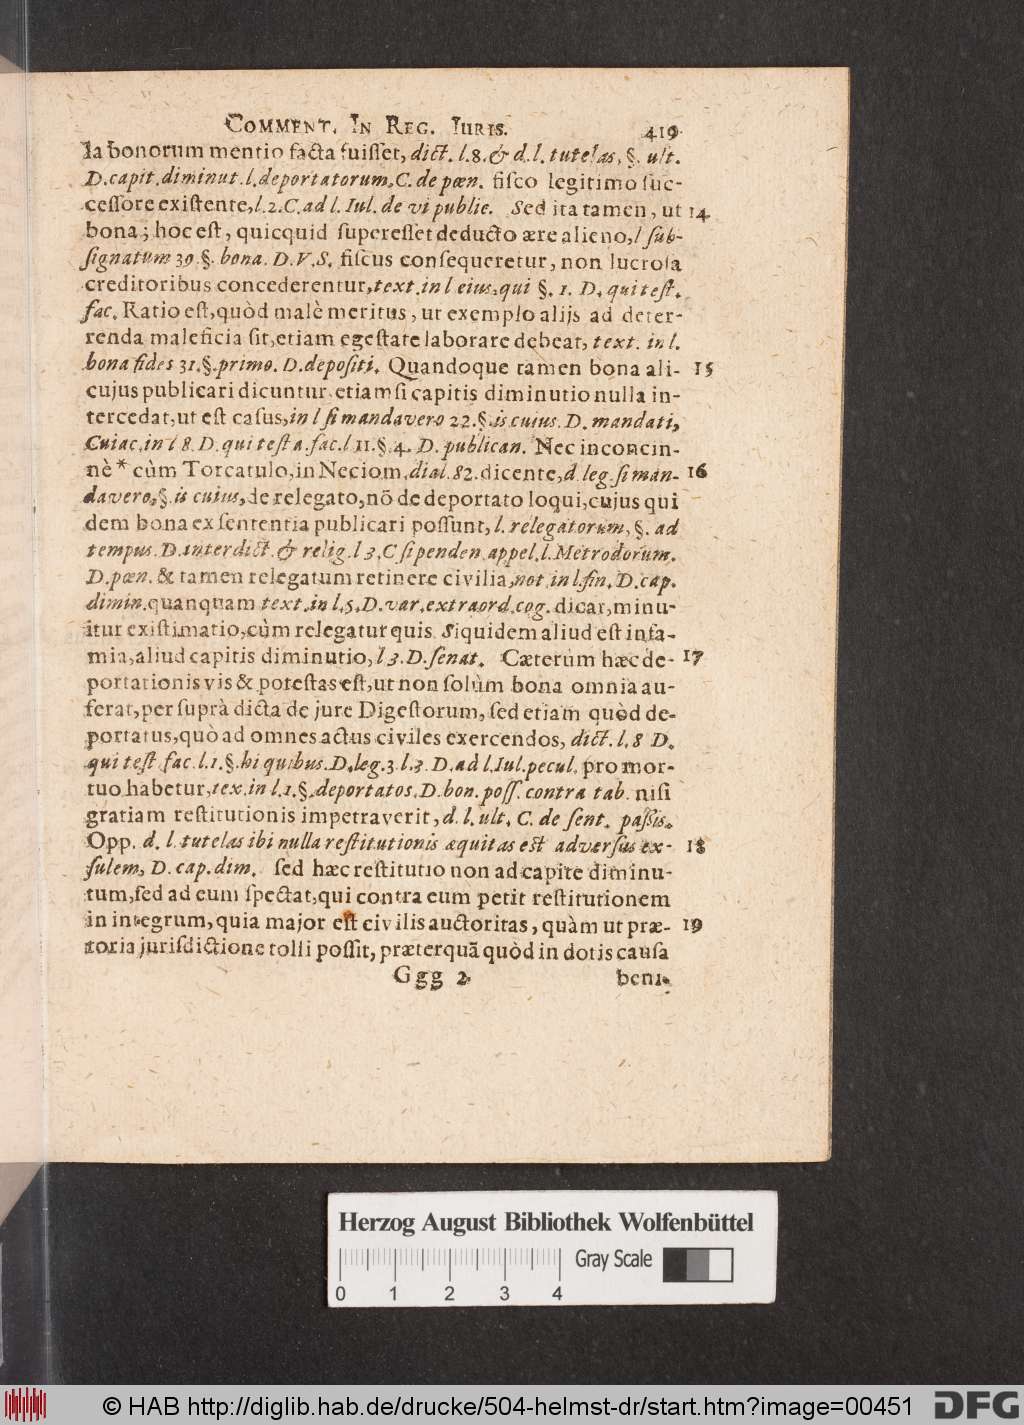 COMMENT. IN REG. IURIS. 419
la bonorum mentio facta fuiſſet, dict. l. 8. & d. l. tutelas, §. ult.
D. capit. diminut. l. deportatorum, C. de pœn. fiſco legitimo ſuc-
ceſſore exiſtente, l. 2. C. ad l. Iul. de vi publie. Sed ita tamen, ut 14
bona; hoc eſt, quicquid ſupereſſet deducto ære alieno, l ſub-
ſignatum 39. §. bona. D. V. S. fiſcus conſequeretur, non lucroſa
creditoribus concederentur, text. in l eius, qui §. 1. D. qui teſt.
fac. Ratio eſt, quòd malè meritus, ut exemplo alijs ad deter-
renda maleficia ſit, etiam egeſtate laborare debeat, text. in l.
bona fides 31. §. primo. D. depoſiti. Quandoque tamen bona ali- 15
cujus publicari dicuntur etiamſi capitis diminutio nulla in-
tercedat, ut eſt caſus, in l ſi mandavero 22. §. is cuius. D. mandati,
Cuiac. in l 8. D. qui teſta. fac. l 11. §. 4. D. publican. Nec inconcin-
nè * cùm Torcatulo, in Neciom, dial. 82. dicente, d leg. ſi man- 16
davero, §. is cuius, de relegato, nō de deportato loqui, cujus qui
dem bona ex ſententia publicari poſſunt, l. relegatorum, §. ad
tempus. D. interdict. & relig. l 3. C ſi penden. appel. l. Metrodorum.
D. pœn. & tamen relegatum retinere civilia, not. in l. fin. D. cap.
dimin. quanquam text. in l. 5. D. var. extraord. cog. dicat, minu-
itur exiſtimatio, cùm relegatur quis. Siquidem aliud eſt infa-
mia, aliud capitis diminutio, l 3. D. ſenat. Cæterùm hæc de- 17
portationis vis & poteſtas eſt, ut non ſolùm bona omnia au-
ferat, per ſuprà dicta de jure Digeſtorum, ſed etiam quòd de-
portatus, quò ad omnes actus civiles exercendos, dict. l. 8 D.
qui teſt. fac. l. 1. §. hi quibus. D. leg. 3. l. 3. D. ad l. Iul. pecul. pro mor-
tuo habetur, tex. in l. 1. §. deportatos. D. bon. poſſ. contra tab. niſi
gratiam reſtitutionis impetraverit, d. l. ult. C. de ſent. paſſis.
Opp. d. l. tutelas ibi nulla reſtitutionis æquitas eſt adverſus ex- 18
ſulem, D. cap. dim. ſed hæc reſtitutio non ad capite diminu-
tum, ſed ad eum ſpectat, qui contra eum petit reſtitutionem
in integrum, quia major eſt civilis auctoritas, quàm ut præ- 19
toria jurisdictione tolli poſſit, præterquā quòd in dotis cauſa
Ggg 2 beni-
Herzog August Bibliothek Wolfenbüttel
Gray Scale
0 1 2 3 4
© HAB http://diglib.hab.de/drucke/504-helmst-dr/start.htm?image=00451
DFG